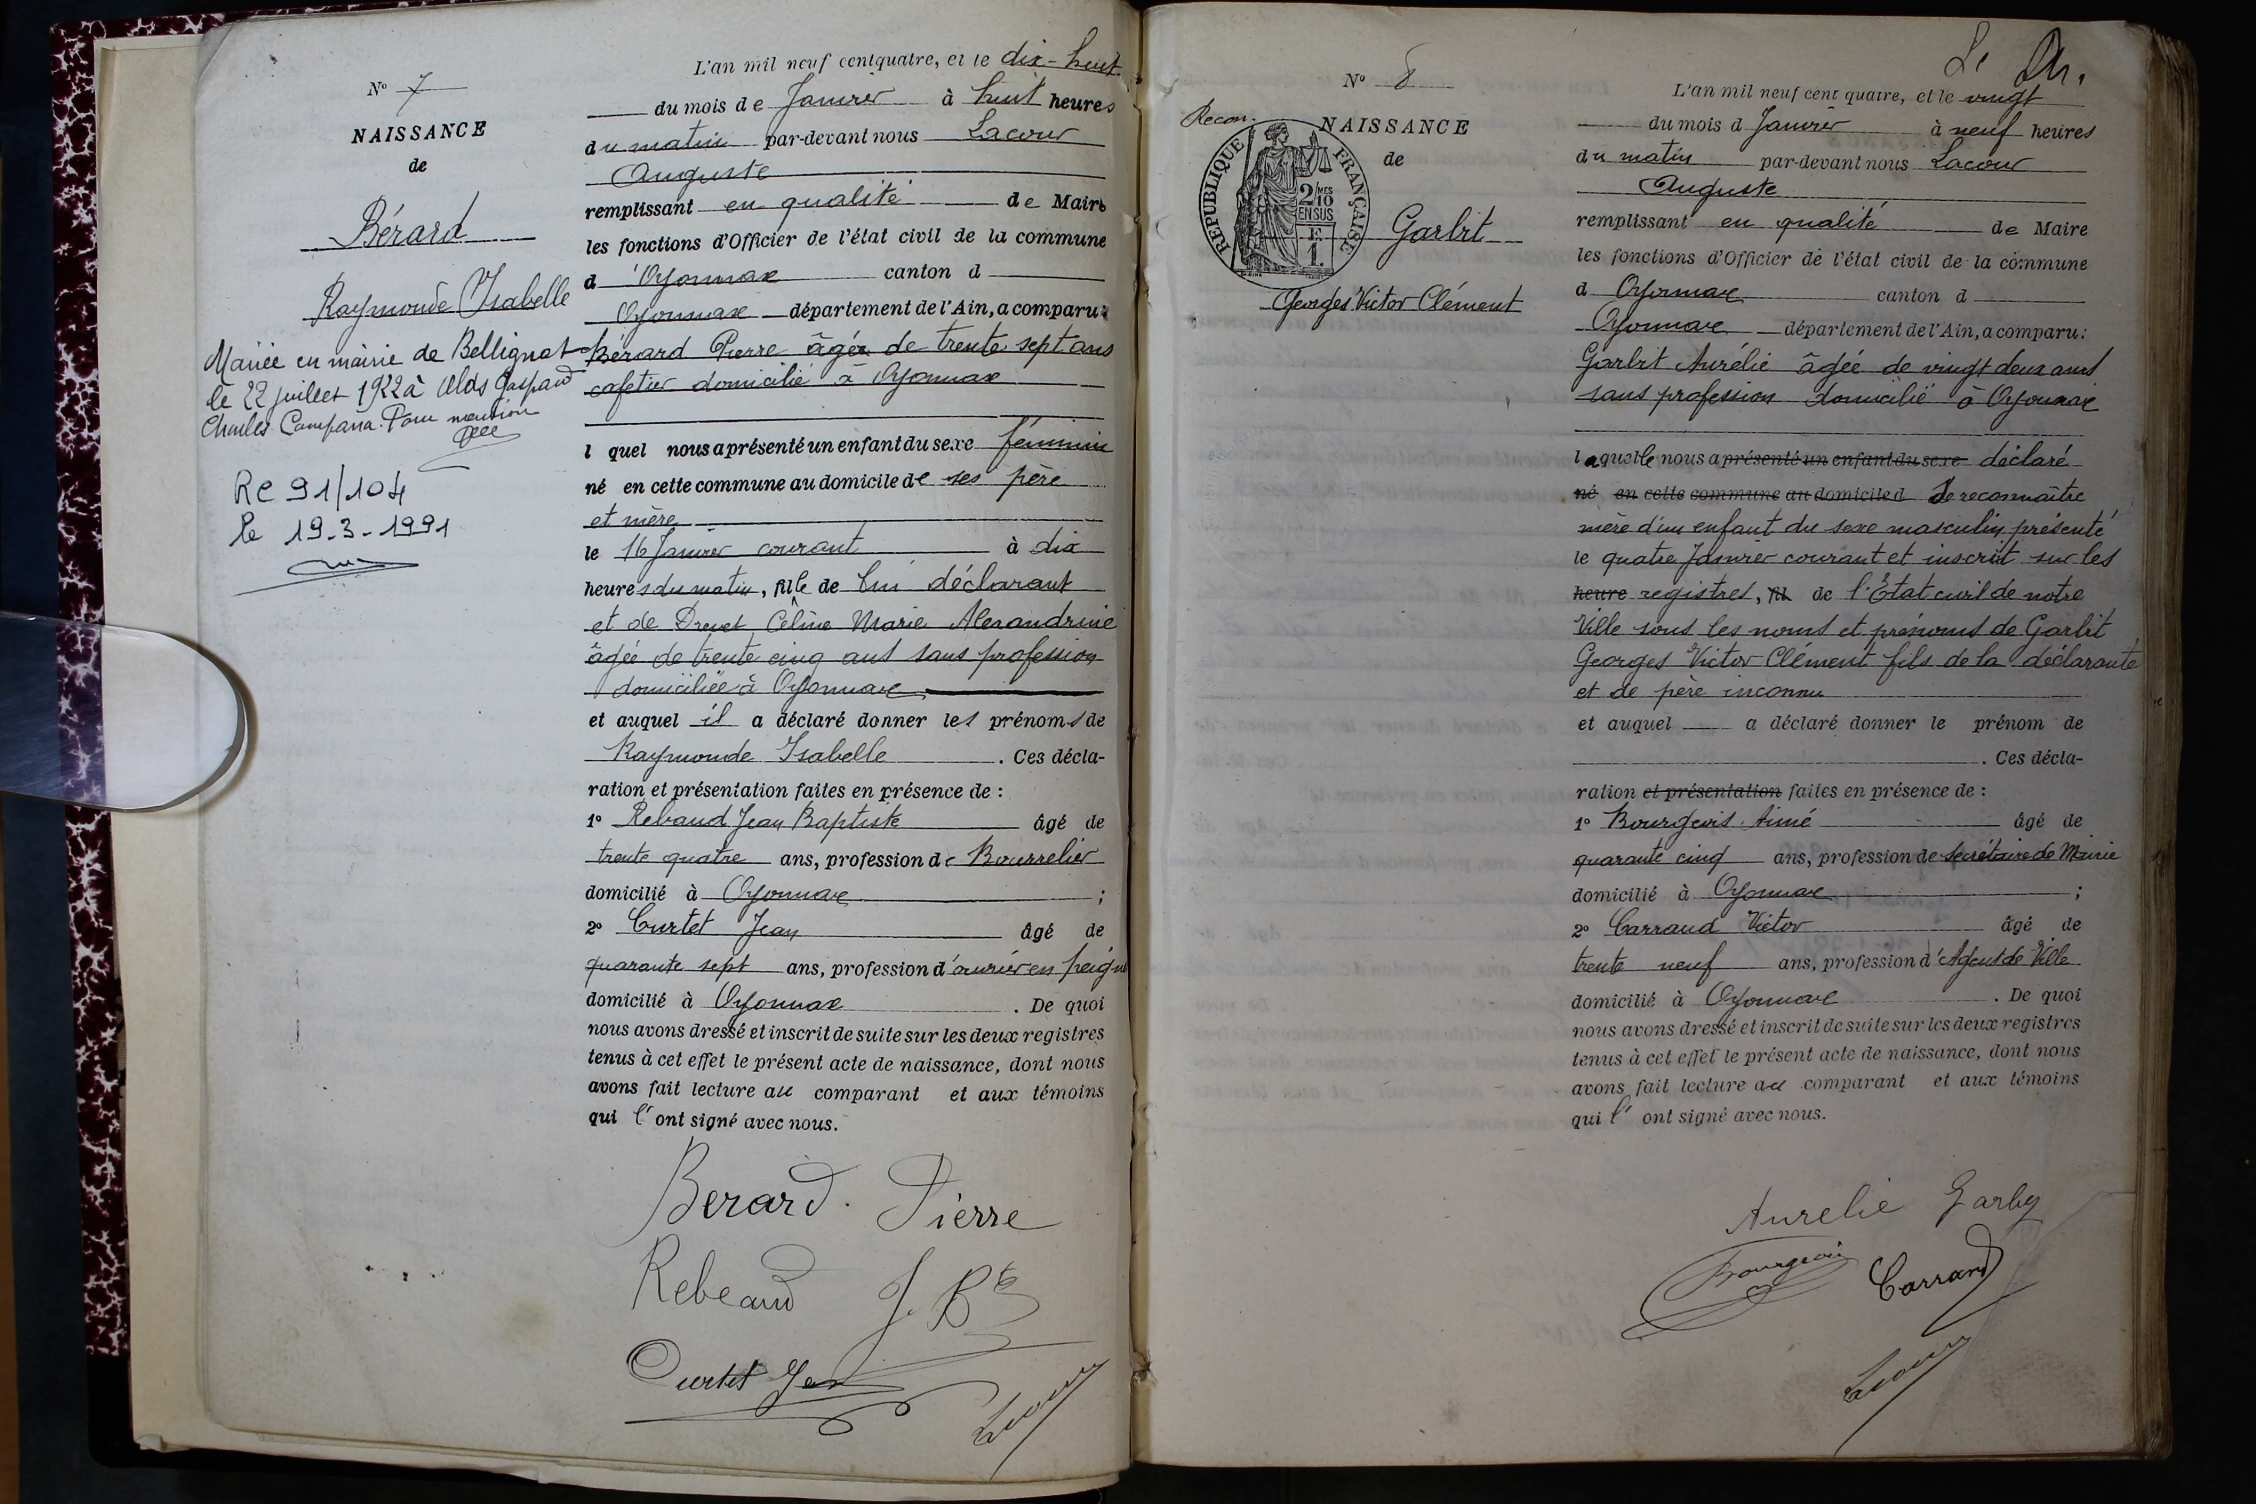 N° 7
NAISSANCE
de
Bérard
Raymonde Isabelle
Mariée en mairie de Bellignat
le 22 juillet 1922 à Gaspard
Charles Campana. Pour mention
Re 91/104
le 19-3-1991
L'an mil neuf cent quatre, et le dix-huit
du mois de Janvier à huit heures
du matin par-devant nous Lacour
Auguste
remplissant en qualité de Maire
les fonctions d'Officier de l'état civil de la commune
d'Oyonnax canton d
Oyonnax département de l'Ain, a comparu:
Bérard Pierre âgé de trente sept ans
cafetier domicilié à Oyonnax
l quel nous a présenté un enfant du sexe féminin
né en cette commune au domicile de ses père
et mère
le 16 Janvier courant à dix
heures du matin, fille de lui déclarant
et de Drevet Céline Marie Alexandrine
âgée de trente cinq ans sans profession
domiciliée à Oyonnax
et auquel il a déclaré donner les prénoms de
Raymonde Isabelle . Ces décla-
ration et présentation faites en présence de :
1° Rebaud Jean Baptiste âgé de
trente quatre ans, profession de Bourrelier
domicilié à Oyonnax ;
2° Curtet Jean âgé de
quarante sept ans, profession d'ouvrier en peigne
domicilié à Oyonnax . De quoi
nous avons dressé et inscrit de suite sur les deux registres
tenus à cet effet le présent acte de naissance, dont nous
avons fait lecture au comparant et aux témoins
qui l'ont signé avec nous.
Berard. Pierre
Rebeaud J. Bte
Curtet Jean
Lacour
N° 8
Recon.
NAISSANCE
de
REPUBLIQUE FRANÇAISE
2/10 MES
EN SUS
F.
1.
Garbit
Georges Victor Clément
L'an mil neuf cent quatre, et le vingt
du mois d Janvier à neuf heures
du matin par-devant nous Lacour
Auguste
remplissant en qualité de Maire
les fonctions d'Officier de l'état civil de la commune
d Oyonnax canton d
Oyonnax département de l'Ain, a comparu:
Garbit Aurélie âgée de vingt deux ans
sans profession domicilié à Oyonnax
laquelle nous a présenté un enfant du sexe déclaré
né en cette commune au domicile d se reconnaître
mère d'un enfant du sexe masculin présenté
le quatre Janvier courant et inscrit sur les
heure registres, fil de l'Etat civil de notre
Ville sous les noms et prénoms de Garbit
Georges Victor Clément fils de la déclarante
et de père inconnu
et auquel a déclaré donner le prénom de
. Ces décla-
ration et présentation faites en présence de :
1° Bourgeois Aimé âgé de
quarante cinq ans, profession de secrétaire de Mairie
domicilié à Oyonnax ;
2° Carraud Victor âgé de
trente neuf ans, profession d'Agent de Ville
domicilié à Oyonnax . De quoi
nous avons dressé et inscrit de suite sur les deux registres
tenus à cet effet le présent acte de naissance, dont nous
avons fait lecture au comparant et aux témoins
qui l'ont signé avec nous.
Aurelie Garby
Bourgeois Carraud
Lacour